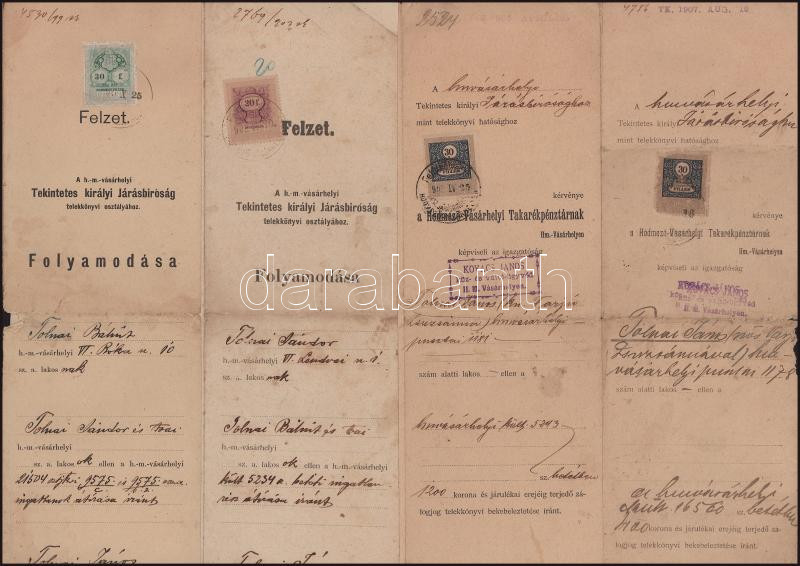 4530/99
30 f.
IX 25
Felzet.
A h.-m.-vásárhelyi
Tekintetes királyi Járásbiróság
telekkönyvi osztályához.
Folyamodása
Tolnai Bálint
h.-m.-vásárhelyi VI. Róka u. 10
sz. a. lakos nak
Tolnai Sándor és trai
h.-m.-vásárhelyi
sz. a. lakos ok ellen a h.-m.-vásárhelyi
21504 9575 és 9575
ingatlanok átirása iránt
Tolnai János
2769
20
20 f.
Felzet.
A h.-m.-vásárhelyi
Tekintetes királyi Járásbiróság
telekkönyvi osztályához.
Folyamodása
Tolnai Sándor
h.-m.-vásárhelyi VI. Lendvai u. 1
sz. a. lakos nak
Tolnai Bálint és trai
h.-m.-vásárhelyi
sz. a. lakos ok ellen a h.-m.-vásárhelyi
külb 5234 a. betéti ingatlan
rész átirása iránt
2524
A hmvásárhelyi
Tekintetes királyi Járásbirósághoz
mint telekkönyvi hatósághoz
30
FILLÉR
kérvénye
a Hódmező-Vásárhelyi Takarékpénztárnak
Hm.-Vásárhelyen
képviseli az igazgatóság
KOVÁCS JÁNOS
köz- és váltó-ügyvéd
H. M. Vásárhelyen.
Zsuzsánna hmvásárhelyi
pusztai 1181
szám alatti lakos – ellen a
hmvásárhelyi külb. 5243
sz. betétben
1200 korona és járulékai erejéig terjedő zá-
logjog telekkönyvi bekebeleztetése iránt.
TK. 1907. AUG. 16
A hmvásárhelyi
Tekintetes királyi Járásbirósághoz
mint telekkönyvi hatósághoz
30
FILLÉR
16
kérvénye
a Hódmező-Vásárhelyi Takarékpénztárnak
Hm.-Vásárhelyen
képviseli az igazgatóság
H. M. Vásárhelyen.
Tolnai János
vásárhelyi pusztai 1178
szám alatti lakos – ellen a
a hmvásárhelyi
16560 sz. betétben
400 korona és járulékai erejéig terjedő zá-
logjog telekkönyvi bekebeleztetése iránt.
darabanth